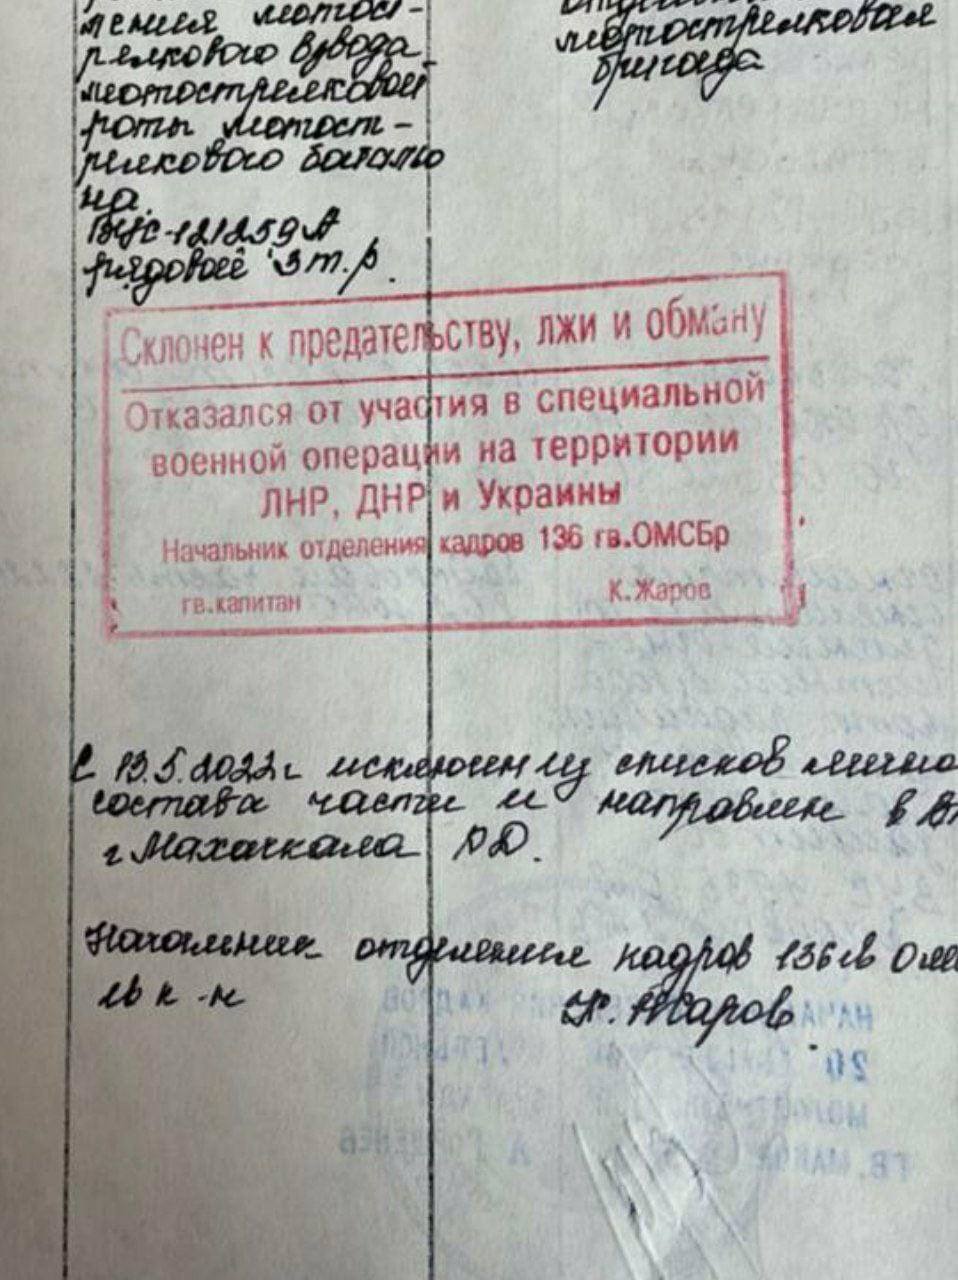 ления мотост-
релкового взвода
мотострелковой
роты мотост-
релкового батальо
на.
ВУС-121259А
рядовой 3 т.р.
мотострелковая
бригада
Склонен к предательству, лжи и обману
Отказался от участия в специальной
военной операции на территории
ЛНР, ДНР и Украины
Начальник отделения кадров 136 гв.ОМСБр
гв.капитан К.Жаров
С 13.5.2022г исключен из списков лично
состава части и направлен в В
г Махачкала РД.
Начальник отделения кадров 136 гв Ом
гв к-н К. Жаров